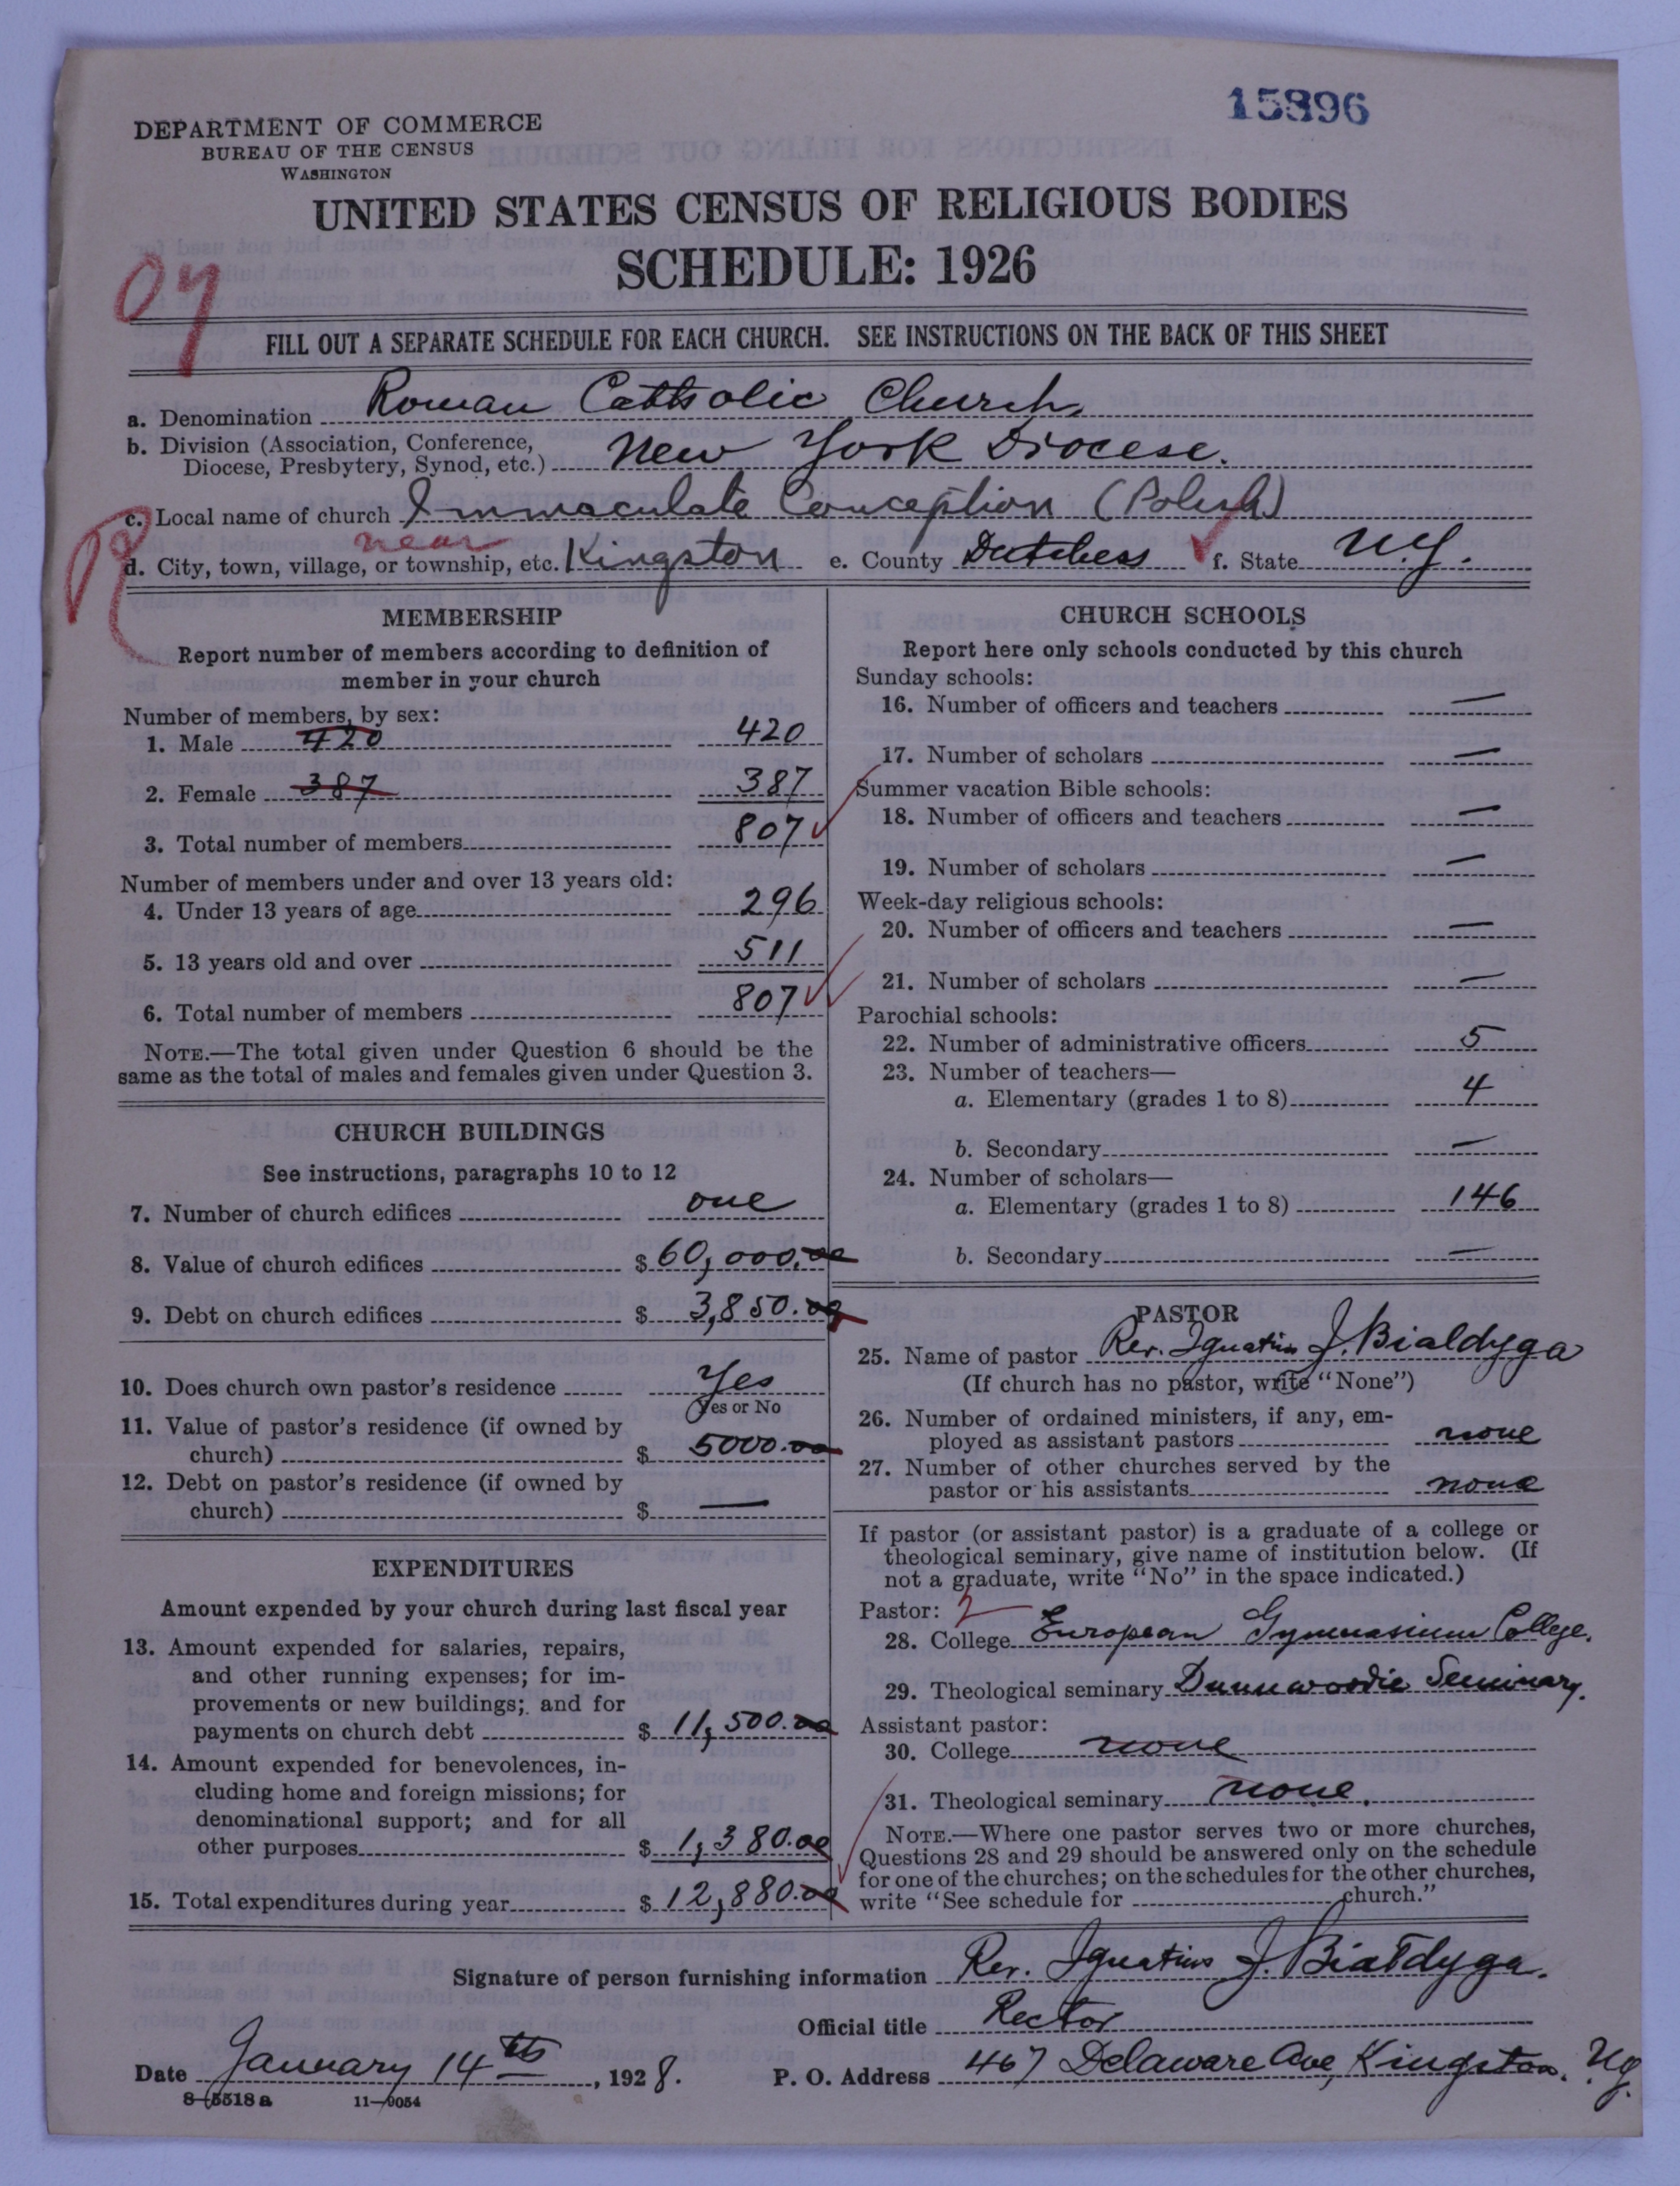 15396
DEPARTMENT OF COMMERCE
BUREAU OF THE CENSUS
WASHINGTON
UNITED STATES CENSUS OF RELIGIOUS BODIES
SCHEDULE: 1926
FILL OUT A SEPARATE SCHEDULE FOR EACH CHURCH. SEE INSTRUCTIONS ON THE BACK OF THIS SHEET
a. Denomination Roman Catholic Church
b. Division (Association, Conference,
Diocese, Presbytery, Synod, etc.) New York Diocese.
c. Local name of church Immaculate Conception (Polish)
near
d. City, town, village, or township, etc. Kingston e. County Dutchess f. State N.Y.
MEMBERSHIP
Report number of members according to definition of
member in your church
Number of members, by sex:
1. Male 420 420
2. Female 387 387
3. Total number of members 807
Number of members under and over 13 years old:
4. Under 13 years of age 296
5. 13 years old and over 511
6. Total number of members 807
NOTE.—The total given under Question 6 should be the
same as the total of males and females given under Question 3.
CHURCH BUILDINGS
See instructions, paragraphs 10 to 12
7. Number of church edifices one
8. Value of church edifices $ 60,000.00
9. Debt on church edifices $ 3,850.00
10. Does church own pastor's residence Yes
Yes or No
11. Value of pastor's residence (if owned by
church) $ 5000.00
12. Debt on pastor's residence (if owned by
church) $ —
EXPENDITURES
Amount expended by your church during last fiscal year
13. Amount expended for salaries, repairs,
and other running expenses; for im-
provements or new buildings; and for
payments on church debt $ 11,500.00
14. Amount expended for benevolences, in-
cluding home and foreign missions; for
denominational support; and for all
other purposes $ 1,380.00
15. Total expenditures during year $ 12,880.00
CHURCH SCHOOLS
Report here only schools conducted by this church
Sunday schools:
16. Number of officers and teachers —
17. Number of scholars —
Summer vacation Bible schools:
18. Number of officers and teachers —
19. Number of scholars —
Week-day religious schools:
20. Number of officers and teachers —
21. Number of scholars —
Parochial schools:
22. Number of administrative officers 5
23. Number of teachers—
a. Elementary (grades 1 to 8) 4
b. Secondary —
24. Number of scholars—
a. Elementary (grades 1 to 8) 146
b. Secondary —
PASTOR
25. Name of pastor Rev. Ignatius J. Bialdyga
(If church has no pastor, write "None")
26. Number of ordained ministers, if any, em-
ployed as assistant pastors none
27. Number of other churches served by the
pastor or his assistants none
If pastor (or assistant pastor) is a graduate of a college or
theological seminary, give name of institution below. (If
not a graduate, write "No" in the space indicated.)
Pastor: 2
28. College European Gymnasium College.
29. Theological seminary Dunnwoodie Seminary.
Assistant pastor:
30. College none
31. Theological seminary none.
NOTE.—Where one pastor serves two or more churches,
Questions 28 and 29 should be answered only on the schedule
for one of the churches; on the schedules for the other churches,
write "See schedule for church."
Signature of person furnishing information Rev. Ignatius J. Białdyga.
Official title Rector
Date January 14th, 1928. P. O. Address 467 Delaware Ave, Kingston. N.Y.
8-5518 a 11-9054